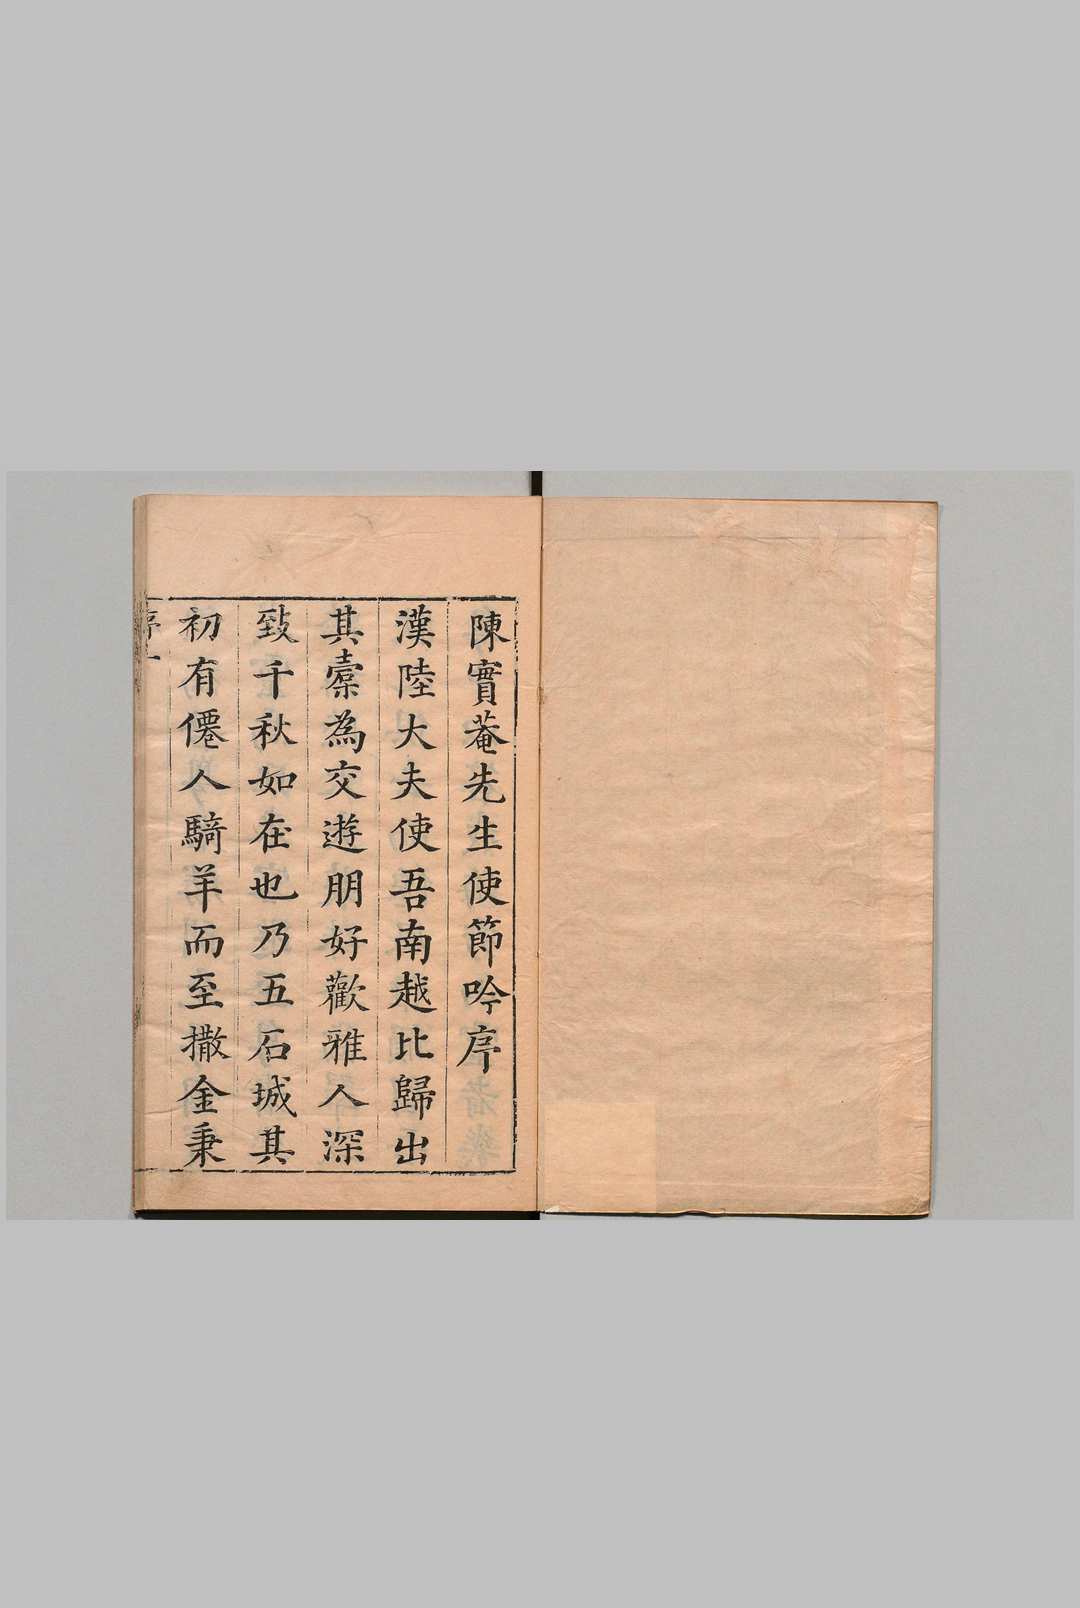 陳實菴先生使節吟序
漢陸大夫使吾南越比歸出
其橐為交遊朋好歡雅人深
致千秋如在也乃五石城其
初有僊人騎羊而至撒金秉
序一